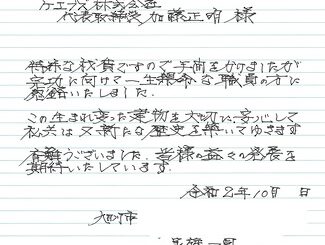 ケェブズ株式会社
代表取締役 加藤正明 様
特殊な技貭ですので手間をかけましたが
完功に向けて一生懸命な職員の方に
感銘いたしました。
この生まれ変った建物を大切に守って
私共は又新たな歴史を築いてゆきます
有難うございました。皆様の益々の発展を
期待いたしています。
令和2年10月 日
旭市